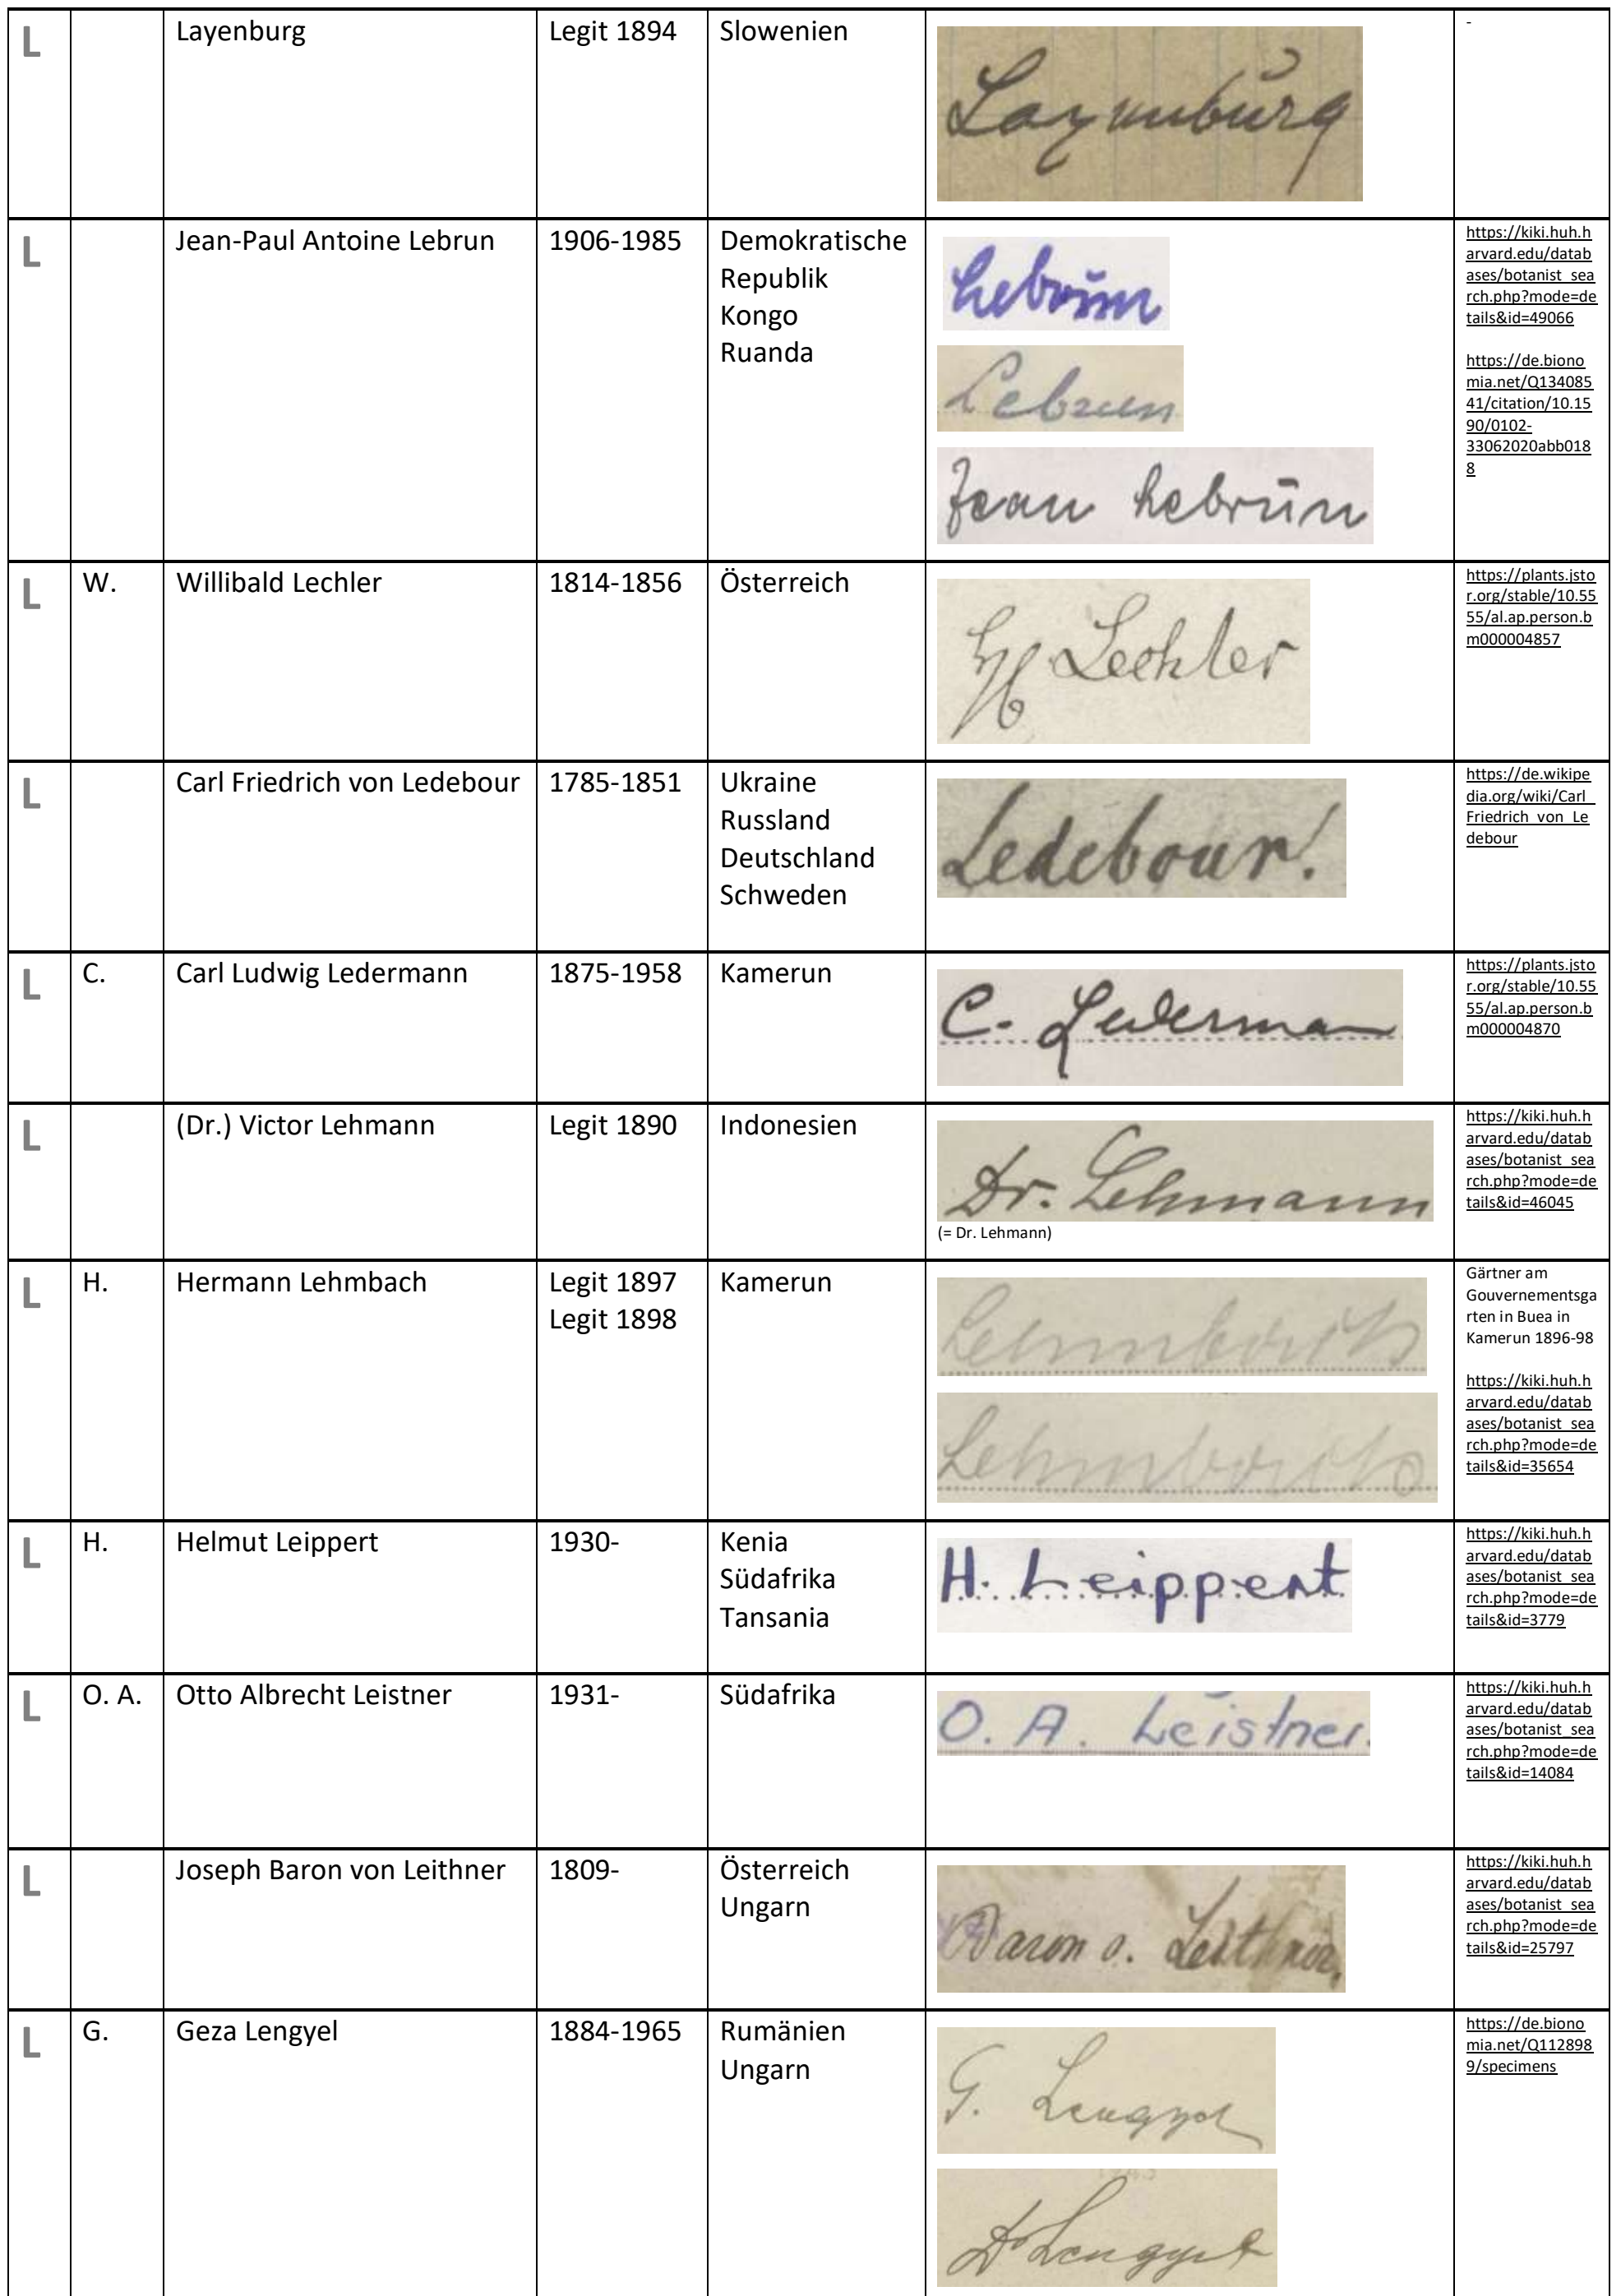 L
Layenburg
Legit 1894
Slowenien
Layenburg
-
L
Jean-Paul Antoine Lebrun
1906-1985
Demokratische
Republik
Kongo
Ruanda
Lebrun
Lebrun
Jean Lebrun
https://kiki.huh.h
arvard.edu/datab
ases/botanist_sea
rch.php?mode=de
tails&id=49066
https://de.biono
mia.net/Q134085
41/citation/10.15
90/0102-
33062020abb018
8
L
W.
Willibald Lechler
1814-1856
Österreich
W. Lechler
https://plants.jsto
r.org/stable/10.55
55/al.ap.person.b
m000004857
L
Carl Friedrich von Ledebour
1785-1851
Ukraine
Russland
Deutschland
Schweden
Ledebour!
https://de.wikipe
dia.org/wiki/Carl_
Friedrich_von_Le
debour
L
C.
Carl Ludwig Ledermann
1875-1958
Kamerun
C. Ledermann
https://plants.jsto
r.org/stable/10.55
55/al.ap.person.b
m000004870
L
(Dr.) Victor Lehmann
Legit 1890
Indonesien
Dr. Lehmann
(= Dr. Lehmann)
https://kiki.huh.h
arvard.edu/datab
ases/botanist_sea
rch.php?mode=de
tails&id=46045
L
H.
Hermann Lehmbach
Legit 1897
Legit 1898
Kamerun
Lehmbach
Lehmbach
Gärtner am
Gouvernementsga
rten in Buea in
Kamerun 1896-98
https://kiki.huh.h
arvard.edu/datab
ases/botanist_sea
rch.php?mode=de
tails&id=35654
L
H.
Helmut Leippert
1930-
Kenia
Südafrika
Tansania
H. Leippert
https://kiki.huh.h
arvard.edu/datab
ases/botanist_sea
rch.php?mode=de
tails&id=3779
L
O. A.
Otto Albrecht Leistner
1931-
Südafrika
O. A. Leistner.
https://kiki.huh.h
arvard.edu/datab
ases/botanist_sea
rch.php?mode=de
tails&id=14084
L
Joseph Baron von Leithner
1809-
Österreich
Ungarn
Baron v. Leithner.
https://kiki.huh.h
arvard.edu/datab
ases/botanist_sea
rch.php?mode=de
tails&id=25797
L
G.
Geza Lengyel
1884-1965
Rumänien
Ungarn
G. Lengyel
Dr Lengyel
https://de.biono
mia.net/Q112898
9/specimens